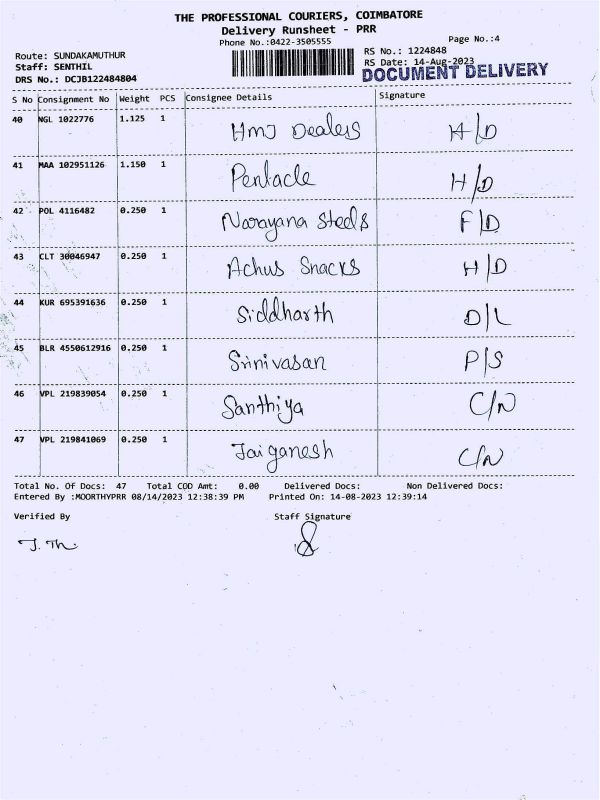 THE PROFESSIONAL COURIERS, COIMBATORE
Delivery Runsheet - PRR
Phone No.:0422-3505555
Page No.:4
Route: SUNDAKAMUTHUR
RS No.: 1224848
Staff: SENTHIL
RS Date: 14-Aug-2023
DRS No.: DCJB122484804
DOCUMENT DELIVERY
S No Consignment No Weight PCS Consignee Details Signature
40 NGL 1022776 1.125 1 HMJ Dealers H/D
41 MAA 102951126 1.150 1 Pentacle H/D
42 POL 4116482 0.250 1 Narayana Steels F/D
43 CLT 30046947 0.250 1 Achus Snacks H/D
44 KUR 695391636 0.250 1 Siddharth D/L
45 BLR 4550612916 0.250 1 Srinivasan P/S
46 VPL 219839054 0.250 1 Santhiya C/N
47 VPL 219841069 0.250 1 Jaiganesh C/N
Total No. Of Docs: 47 Total COD Amt: 0.00 Delivered Docs: Non Delivered Docs:
Entered By :MOORTHYPRR 08/14/2023 12:38:39 PM Printed On: 14-08-2023 12:39:14
Verified By Staff Signature